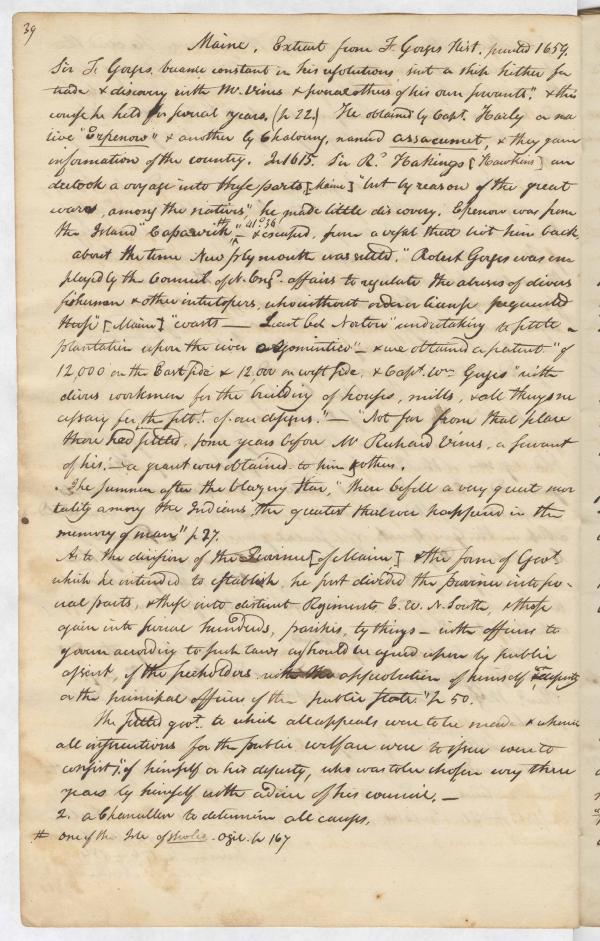 39
Maine. Extract from F. Gorges Hist. printed 1659.
Sir F. Gorges became constant in his resolutions, sent a ship hither for
trade & discovery with Mr. Vines & several others of his own servants." & this
course he held for several years. (p 22.) He obtained by Capt. Harly a na
tive "Eepenow" & another by Chalowns, named assacumet, & they gain
information of the country. In 1615. Sir Rd. Hakings [Hawkins] un
dertook a voyage into these parts [Maine] "but by reason of the great
wars, among the natives" he made little discovery. Epenow was from
the Island "Capawith" & escaped, from a vessel that left him back
about the time New plymouth was settled." Robert Gorges was em
ployed by the Council of N. Engd. affairs to regulate the abuses of divers
fishermen & other interlopers, who without order or license frequented
those" [Maine] "coasts — Lieut Col Norton" undertaking to settle a
plantation upon the river agomintico" — & we obtained a patent "of
12,000 on the East side & 12,000 on west side, & Capt. Wm Gorges" with
divers workmen for the building of houses, mills, & all things ne
cessary for the settt. of our designs." — "Not far from that place
there had settled, some years before Mr Richard Vines, a servant
of his. — a grant was obtained to him & others.
. The summer after the blazing star, "there befell a very great mor
tality among the Indians, the greatest that ever happened in the
memory of man" p 27.
As to the division of the Province [of Maine] & the form of Govt.
which he intended to establish, he first divided the province into se-
veral parts, & those into distinct Regiments E. W. N. South, & those
again into several hundreds, parishes, tythings — with officers to
govern according to such laws as should be agreed upon by public
assent, of the freeholders with the approbation of himself or deputy
or the principal officers of the public state." p 50.
The settled govt. to which all appeals were to be made & whence
all instructions for the public welfare were to issue were to
consist," of himself or his deputy, who was to be chosen every three
years by himself with advice of his council. —
2. a Chancellor to determine all causes.
# one of the Isle of sholes. Ogil. p 167